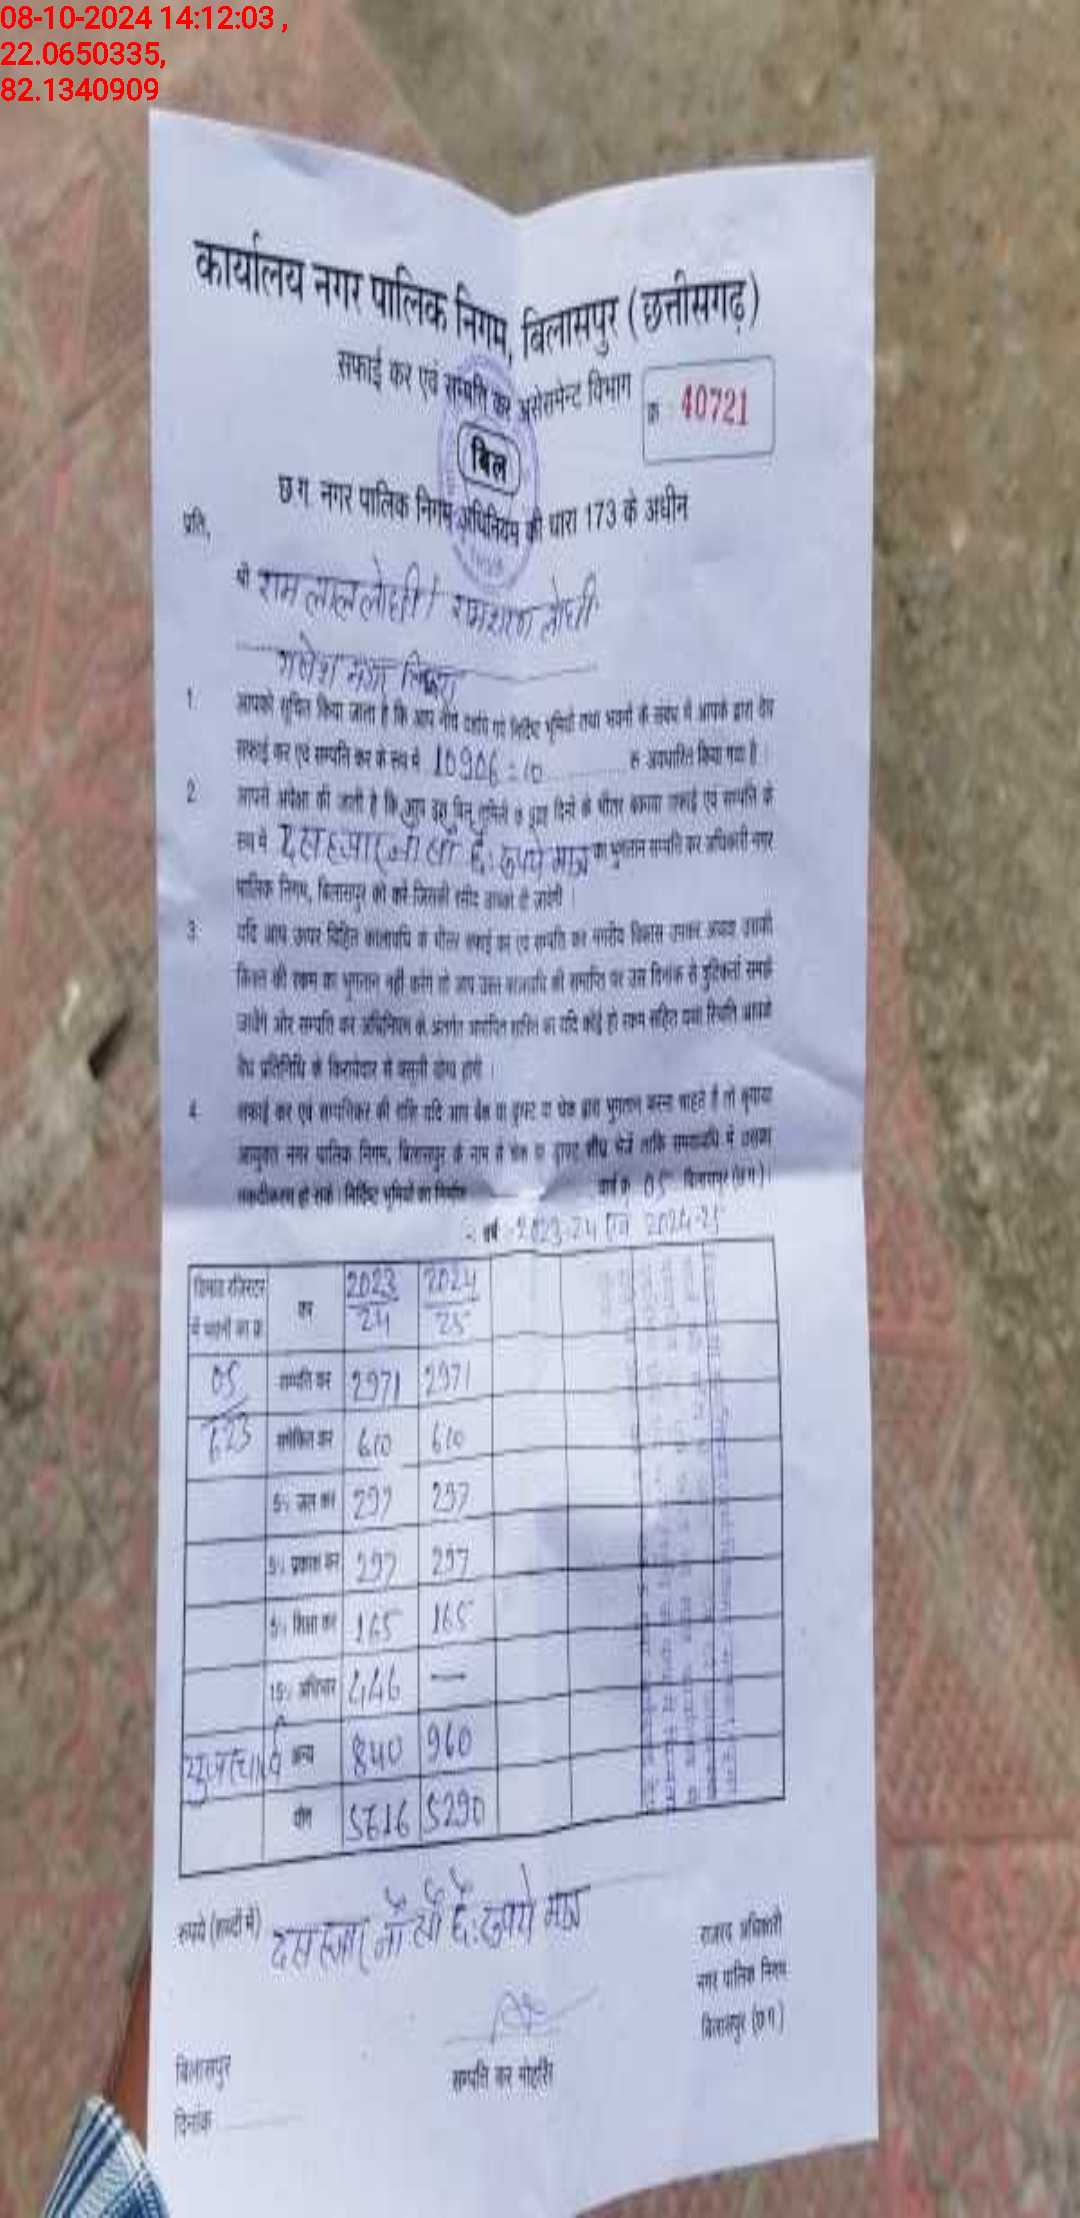 08-10-2024 14:12:03 ,
22.0650335,
82.1340909
कार्यालय नगर पालिक निगम, बिलासपुर (छत्तीसगढ़)
सफाई कर एवं सम्पति कर असेसमेन्ट विभाग
क्र 40721
बिल
छ.ग. नगर पालिक निगम अधिनियम की धारा 173 के अधीन
प्रति,
श्री राम लाल लोधी / रामशरण लोधी
गणेश नगर
1. आपको सूचित किया जाता है कि आप नीचे दर्शाये गये निर्दिष्ट भूमियों तथा भवनों के संबंध में आपके द्वारा देय
सफाई कर एवं सम्पति कर के रूप में 10906=10 रू. अवधारित किया गया है ।
2. आपसे अपेक्षा की जाती है कि आप इस बिल तामिली के दिनों के भीतर बकाया सफाई एवं सम्पति के
रूप में दस हजार नौ सौ छै: रूपये मात्र का भुगतान सम्पति कर अधिकारी नगर
पालिक निगम, बिलासपुर को करें जिसकी रसीद आपको दी जावेगी ।
3. यदि आप ऊपर विहित कालावधि के भीतर सफाई कर एवं सम्पति कर नगरीय विकास उपकर अथवा उसकी
किश्त की रकम का भुगतान नहीं करेंगे तो आप उक्त कालावधि की समाप्ति पर उस दिनांक से त्रुटिकर्ता समझे
जावेंगे और सम्पति कर अधिनियम के अंतर्गत आरोपित शास्ति का यदि कोई हो रकम सहित यथा स्थिति आपके
वैध प्रतिनिधि के किरायेदार से वसूली योग्य होगी ।
4. सफाई कर एवं सम्पत्तिकर की राशि यदि आप बैंक या ड्राफ्ट या चेक द्वारा भुगतान करना चाहते हैं तो कृपया
आयुक्त नगर पालिक निगम, बिलासपुर के नाम से चेक या ड्राफ्ट शीघ्र भेजें ताकि समयावधि में उसका
नकदीकरण हो सके । निर्दिष्ट भूमियों का निर्माण वार्ड क्र. 05 बिलासपुर (छ.ग.)।
वर्ष :- 2023-24 एवं 2024-25
डिमांड रजिस्टर में भवनों का क्र. कर 2023/24 2024/25
05 सम्पति कर 2971 2971
623 समेकित कर 600 600
5% जल कर 297 297
5% प्रकाश कर 297 297
5% शिक्षा कर 165 165
15% अधिभार 446 —
यूजर चार्ज अन्य 840 960
योग 5616 5290
रूपये (शब्दों में) दस हजार नौ सौ छै: रूपये मात्र
राजस्व अधिकारी
नगर पालिक निगम
बिलासपुर (छ.ग.)
सम्पति कर मोहर्रिर
बिलासपुर
दिनांक